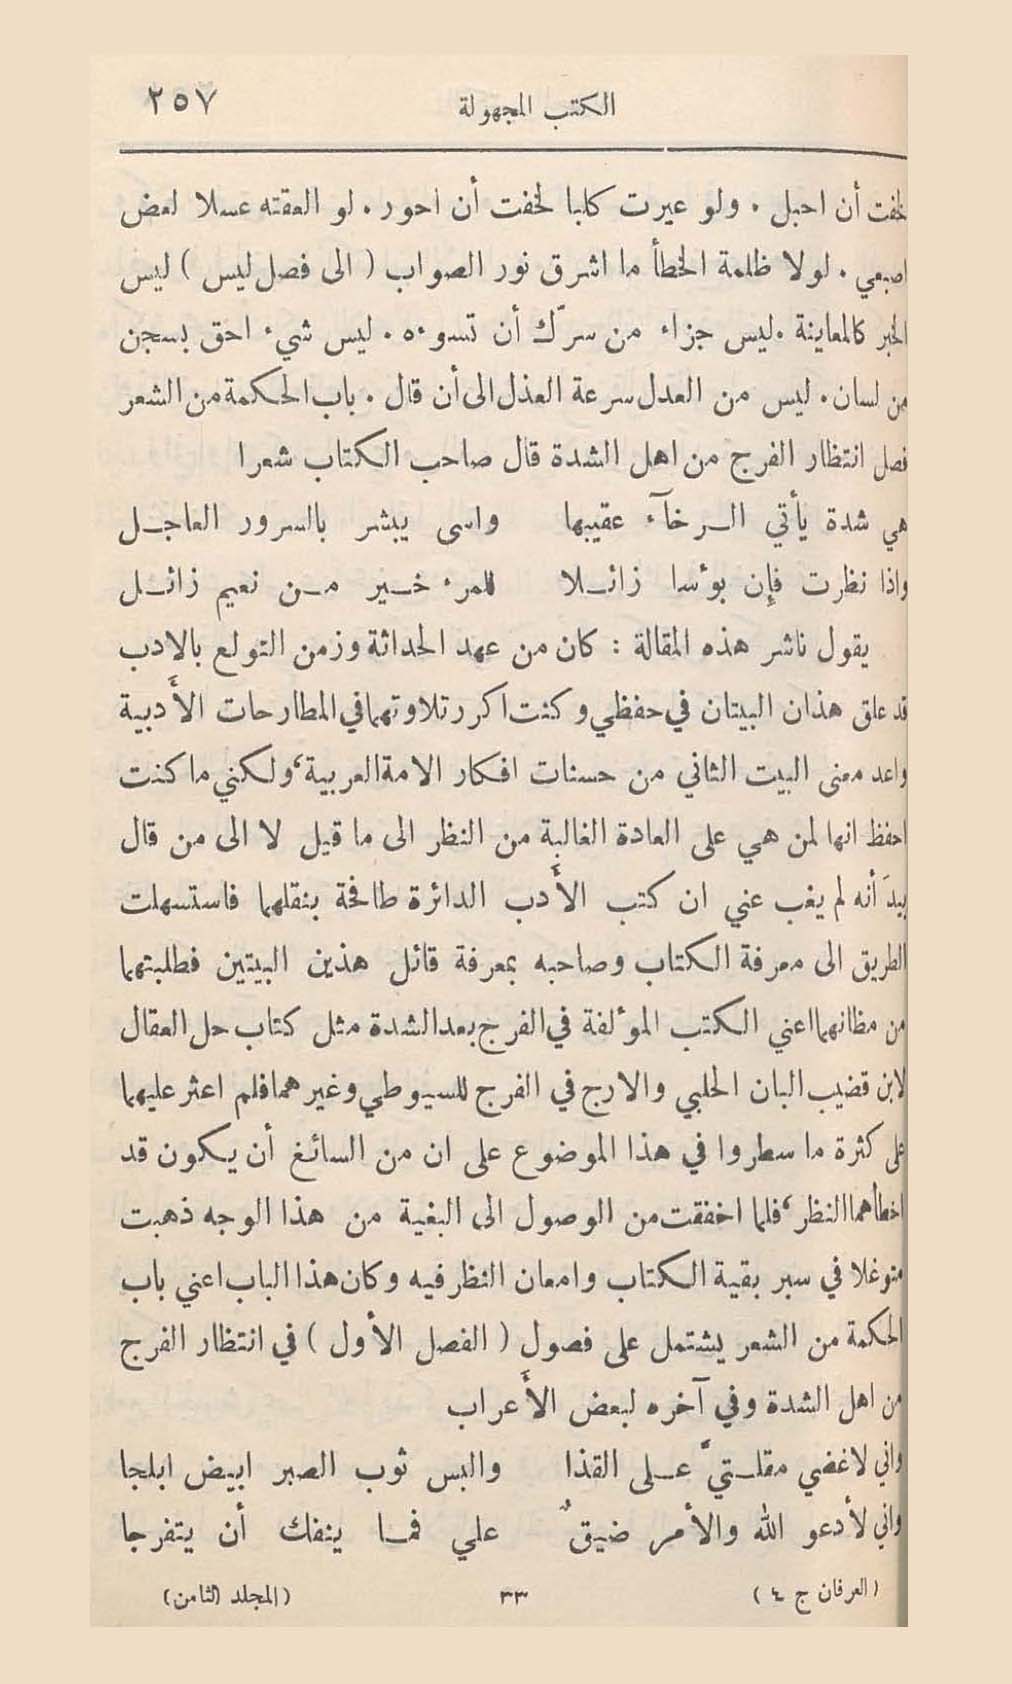 الكتب المجهولة ٢٥٧
لخفت أن احبل . ولو عيرت كلبا لخفت أن احور . لو العقته عسلا لعض
اصبعي . لولا ظلمة الخطأ ما اشرق نور الصواب ( الى فصل ليس ) ليس
الخبر كالمعاينة . ليس جزاء من سرّك أن تسوءه . ليس شيء احق بسجن
من لسان . ليس من العدل سرعة العذل الى أن قال . باب الحكمة من الشعر
فصل انتظار الفرج من اهل الشدة قال صاحب الكتاب شعرا
هي شدة يأتي الـرخآء عقيبها واسى يبشر بالسرور العاجـل
واذا نظرت فإن بوٴسا زائـلا للمرء خـير مـن نعيم زائـل
يقول ناشر هذه المقالة : كان من عهد الحداثة وزمن التولع بالادب
قد علق هذان البيتان في حفظي وكنت اكرر تلاوتهما في المطارحات الأدبية
واعد معنى البيت الثاني من حسنات افكار الامة العربية، ولكني ما كنت
احفظ انها لمن هي على العادة الغالبة من النظر الى ما قيل لا الى من قال
بيدَ أنه لم يغب عني ان كتب الأدب الدائرة طافحة بنقلهما فاستسهلت
الطريق الى معرفة الكتاب وصاحبه بمعرفة قائل هذين البيتين فطلبتهما
من مظانهما اعني الكتب الموٴلفة في الفرج بعد الشدة مثل كتاب حل العقال
لابن قضيب البان الحلبي والارج في الفرج للسيوطي وغيرهما فلم اعثر عليهما
على كثرة ما سطروا في هذا الموضوع على ان من السائغ أن يكون قد
اخطأهما النظر، فلما اخفقت من الوصول الى البغية من هذا الوجه ذهبت
متوغلا في سبر بقية الكتاب وامعان النظر فيه وكان هذا الباب اعني باب
الحكمة من الشعر يشتمل على فصول ( الفصل الأول ) في انتظار الفرج
من اهل الشدة وفي آخره لبعض الأعراب
واني لاغضي مقلـتيَّ عـلى القذا والبس ثوب الصبر ابيض ابلجا
واني لأدعو الله والأمر ضيقٌ علي فمـا ينفك أن يتفرجا
( العرفان ج ٤ ) ٣٣ ( المجلد الثامن )